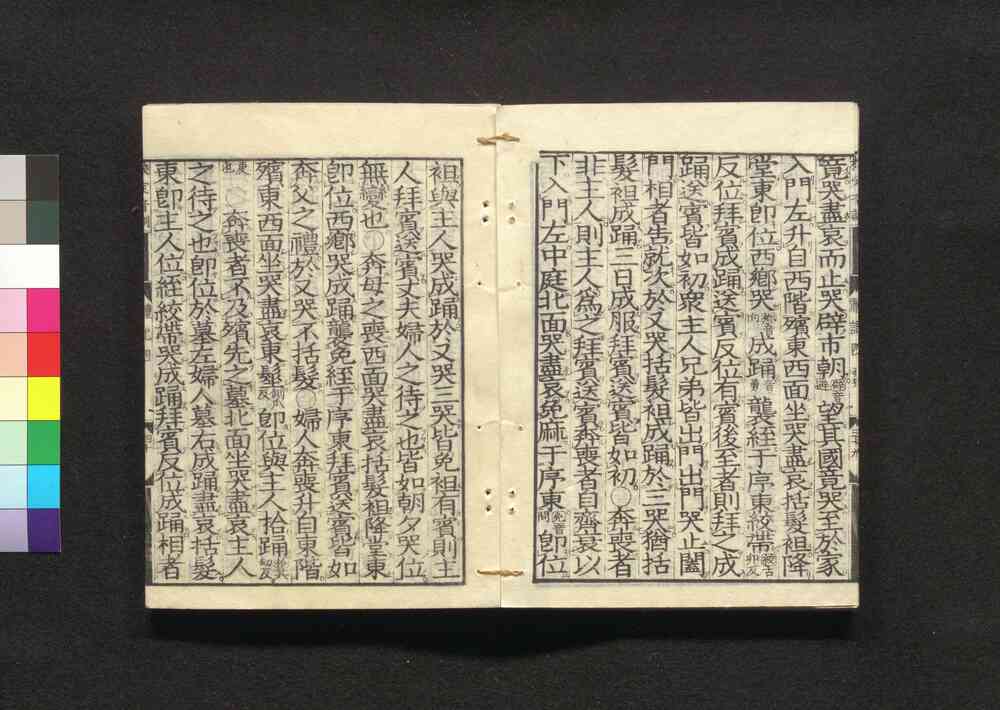 竟哭盡哀而止哭辟市朝辟音避望其國竟哭至於家
入門左升自西階殯東西面坐哭盡哀括髮袒降
堂東即位西鄉哭成踊襲絰于序東絞帶絞古卯反
反位拜賓成踊送賓反位有賓後至者則拜之成
踊送賓皆如初衆主人兄弟皆出門出門哭止闔
門相者告就次於又哭括髮袒成踊於三哭猶括
髮袒成踊三日成服拜賓送賓皆如初○奔喪者
非主人則主人爲之拜賓送賓奔喪者自齊衰以
下入門左中庭北面哭盡哀免麻于序東免音問即位
袒與主人哭成踊於又哭三哭皆免袒有賓則主
人拜賓送賓丈夫婦人之待之也皆如朝夕哭位
無變也○奔母之喪西面哭盡哀括髮袒降堂東
即位西鄉哭成踊襲免絰于序東拜賓送賓皆如
奔父之禮於又哭不括髮○婦人奔喪升自東階
殯東西面坐哭盡哀東髽即位與主人拾踊
○奔喪者不及殯先之墓北面坐哭盡哀主人
之待之也即位於墓左婦人墓右成踊盡哀括髮
東即主人位絰絞帶哭成踊拜賓反位成踊相者